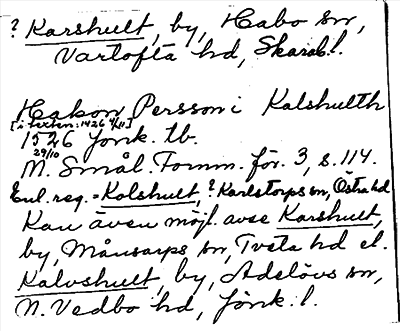 ? Karshult, by, Habo sn,
Vartofta hd, Skarab. l.
Hakon Persson i Kalshulth
[i texten: 1426 4/11]
1526 Jönk. tb.
29/10
M. Smål. Fornm. för. 3, s. 114.
Enl. reg. = Kolshult, ? Karlstorps sn, Östra hd
Kan även möjl. avse Karshult,
by, Månsarps sn, Tveta hd el.
Kalvshult, by, Adelövs sn,
N. Vedbo hd, Jönk. l.